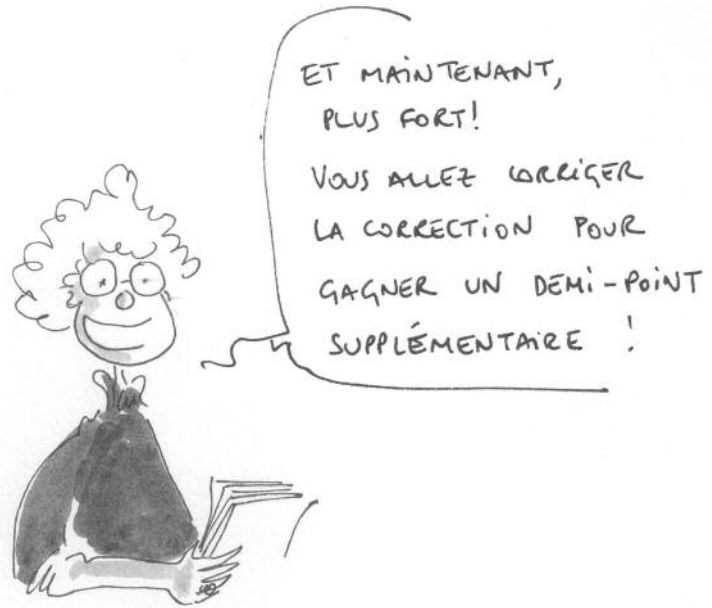 ET MAINTENANT,
PLUS FORT!
VOUS ALLEZ CORRIGER
LA CORRECTION POUR
GAGNER UN DEMI-POINT
SUPPLÉMENTAIRE !